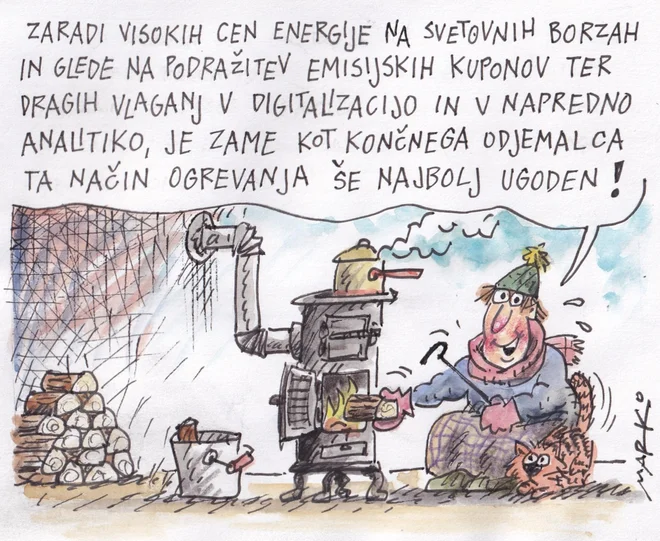 ZARADI VISOKIH CEN ENERGIJE NA SVETOVNIH BORZAH
IN GLEDE NA PODRAŽITEV EMISIJSKIH KUPONOV TER
DRAGIH VLAGANJ V DIGITALIZACIJO IN V NAPREDNO
ANALITIKO, JE ZAME KOT KONČNEGA ODJEMALCA
TA NAČIN OGREVANJA ŠE NAJBOLJ UGODEN!
MARKO